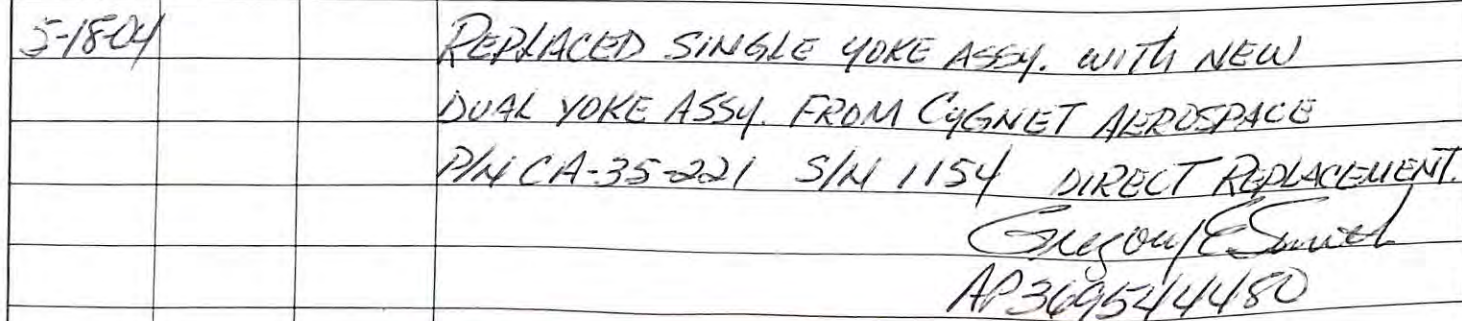 5-18-04 REPLACED SINGLE YOKE ASSY. WITH NEW
DUAL YOKE ASSY. FROM CYGNET AEROSPACE
P/N CA-35-221 S/N 1154 DIRECT REPLACEMENT.
Gregory E Smith
AP369544480